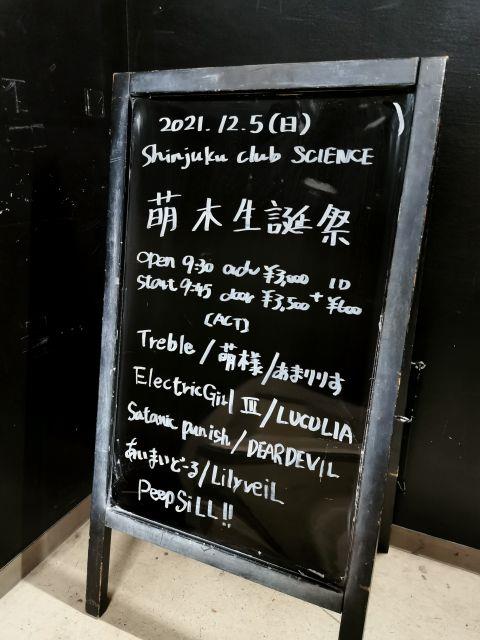 2021. 12. 5 (日)
Shinjuku club SCIENCE
萌木生誕祭
open 9:30 adv ¥3,000 1D
start 9:45 door ¥3,500 + ¥600
[ACT]
Treble / 萌様 / あまりりす
ElectricGirl III / LUCULIA
Satanic punish / DEARDEVIL
あいまいどーる / LilyveiL
PeepSiLL!!